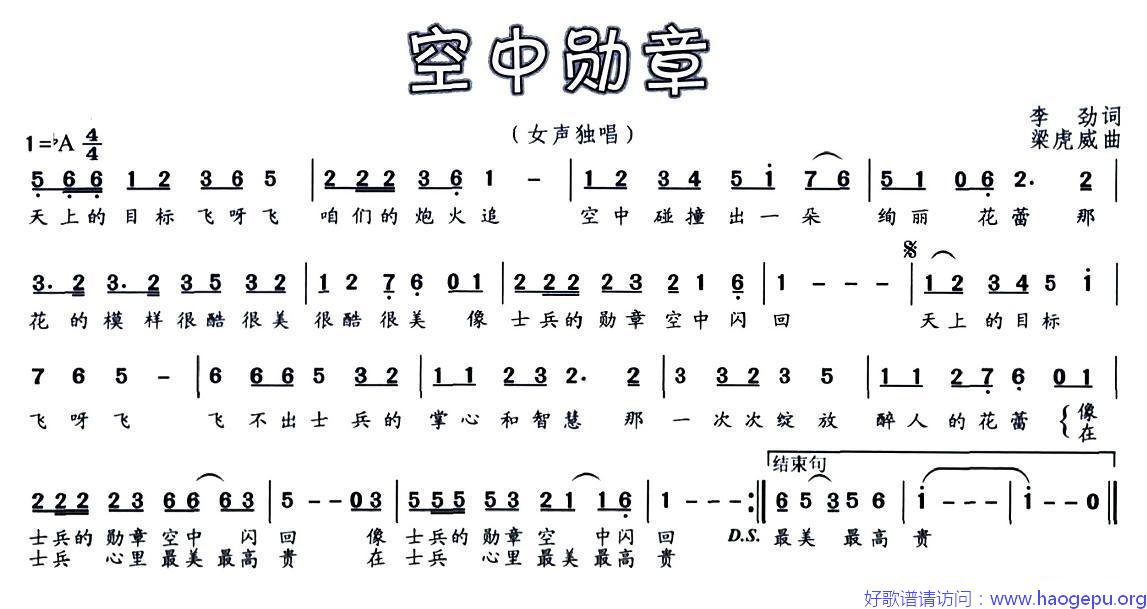 空中勋章
(女声独唱)
李 劲词
梁虎威曲
1=♭A 4/4
5 6 6 1 2 3 6 5 | 2 2 2 3 6 1 - | 1 2 3 4 5 i 7 6 | 5 1 0 6 2. 2 |
天上的目标飞呀飞 咱们的炮火追 空中碰撞出一朵 绚丽 花蕾 那
3. 2 3. 2 3 5 3 2 | 1 2 7 6 0 1 | 2 2 2 2 3 2 1 6 | 1 - - - | 1 2 3 4 5 i |
花的模样很酷很美 很酷很美 像 士兵的勋章空中闪回 天上的目标
7 6 5 - | 6 6 6 5 3 2 | 1 1 2 3 2. 2 | 3 3 2 3 5 | 1 1 2 7 6 0 1 |
飞呀飞 飞不出士兵的 掌心和智慧 那 一次次绽放 醉人的花蕾 {像
在
结束句
2 2 2 2 3 6 6 6 3 | 5 - - 0 3 | 5 5 5 5 3 2 1 1 6 | 1 - - - :‖ 6 5 3 5 6 | i - - - | i - - 0 ‖
士兵的勋章空中 闪回 像 士兵的勋章空 中闪回 D.S. 最美 最高贵
士兵 心里最美最高贵 在 士兵 心里最美最高贵
好歌谱请访问：www.haogepu.org